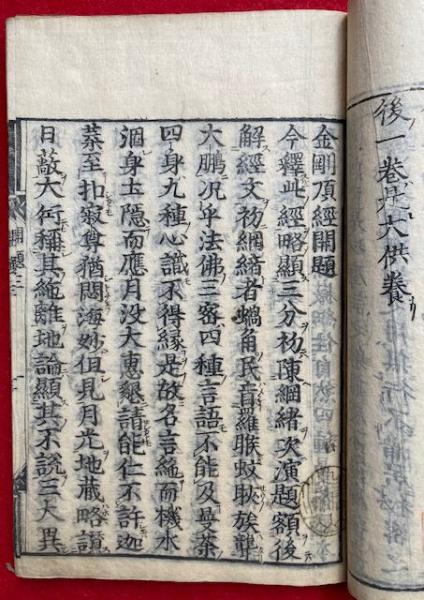 後一卷是大供養
金剛頂經開題
今釋此經略顯三分初陳綱緒次演題額後
解經文初綱緒者蝸角民音羅睺蚊眇族聾
大鵬况乎法佛三密四種言語不能及曼荼
四身九種心識不得緣是故名言絶而機水
涸身土隱而應月没大惠懇請能仁不許迦
葉至扣寂尊猶悶海妙但見月光地藏略讃
日敵大術稱其絶離地論顯其不說三大異